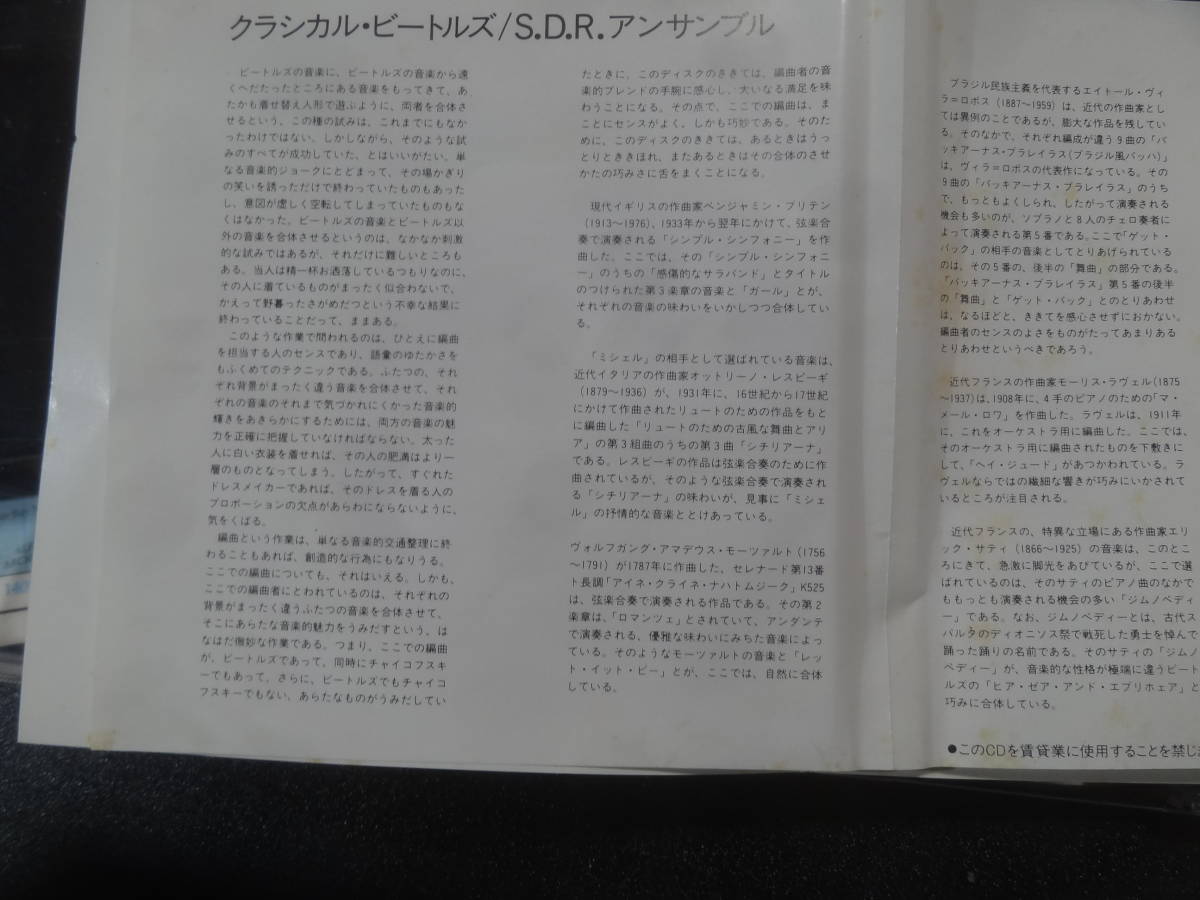 クラシカル・ビートルズ/S.D.R.アンサンブル
ビートルズの音楽に、ビートルズの音楽から遠
くへだたったところにある音楽をもってきて、あ
たかも着せ替え人形で遊ぶように、両者を合体さ
せるという、この種の試みは、これまでにもなか
ったわけではない。しかしながら、そのような試
みのすべてが成功していた、とはいいがたい。単
なる音楽的ジョークにとどまって、その場かぎり
の笑いを誘っただけで終わっていたものもあった
し、意図が虚しく空転してしまっていたものもな
くはなかった。ビートルズの音楽とビートルズ以
外の音楽を合体させるというのは、なかなか刺激
的な試みではあるが、それだけに難しいところも
ある。当人は精一杯お洒落しているつもりなのに、
その人に着ているものがまったく似合わないで、
かえって野暮ったさがめだつという不幸な結果に
終わっていることだって、ままある。
このような作業で問われるのは、ひとえに編曲
を担当する人のセンスであり、語彙のゆたかさを
もふくめてのテクニックである。ふたつの、それ
ぞれ背景がまったく違う音楽を合体させて、それ
ぞれの音楽のそれまで気づかれにくかった音楽的
輝きをあきらかにするためには、両方の音楽の魅
力を正確に把握していなければならない。太った
人に白い衣装を着せれば、その人の肥満はより一
層のものとなってしまう。したがって、すぐれた
ドレスメイカーであれば、そのドレスを着る人の
プロポーションの欠点があらわにならないように、
気をくばる。
編曲という作業は、単なる音楽的交通整理に終
わることもあれば、創造的な行為にもなりうる。
ここでの編曲についても、それはいえる。しかも、
ここでの編曲者にとわれているのは、それぞれの
背景がまったく違うふたつの音楽を合体させて、
そこにあらたな音楽的魅力をうみだすという、は
なはだ微妙な作業である。つまり、ここでの編曲
が、ビートルズであって、同時にチャイコフスキ
ーでもあって、さらに、ビートルズでもチャイコ
フスキーでもない、あらたなものがうみだしてい
たときに、このディスクのききては、編曲者の音
楽的ブレンドの手腕に感心し、大いなる満足を味
わうことになる。その点で、ここでの編曲は、ま
ことにセンスがよく、しかも巧妙である。そのた
めに、このディスクのききては、あるときはうっ
とりとききほれ、またあるときはその合体のさせ
かたの巧みさに舌をまくことになる。
現代イギリスの作曲家ベンジャミン・ブリテン
(1913〜1976)、1933年から翌年にかけて、弦楽合
奏で演奏される「シンプル・シンフォニー」を作
曲した。ここでは、その「シンプル・シンフォニ
ー」のうちの「感傷的なサラバンド」とタイトル
のつけられた第3楽章の音楽と「ガール」とが、
それぞれの音楽の味わいをいかしつつ合体してい
る。
「ミシェル」の相手として選ばれている音楽は、
近代イタリアの作曲家オットリーノ・レスピーギ
(1879〜1936)が、1931年に、16世紀から17世紀
にかけて作曲されたリュートのための作品をもと
に編曲した「リュートのための古風な舞曲とアリ
ア」の第3組曲のうちの第3曲「シチリアーナ」
である。レスピーギの作品は弦楽合奏のために作
曲されているが、そのような弦楽合奏で演奏され
る「シチリアーナ」の味わいが、見事に「ミシェ
ル」の抒情的な音楽ととけあっている。
ヴォルフガング・アマデウス・モーツァルト(1756
〜1791)が1787年に作曲した、セレナード第13番
ト長調「アイネ・クライネ・ナハトムジーク」K525
は、弦楽合奏で演奏される作品である。その第2
楽章は、「ロマンツェ」とされていて、アンダンテ
で演奏される、優雅な味わいにみちた音楽によっ
ている。そのようなモーツァルトの音楽と「レッ
ト・イット・ビー」とが、ここでは、自然に合体
している。
ブラジル民族主義を代表するエイトール・ヴィ
ラ=ロボス(1887〜1959)は、近代の作曲家とし
ては異例のことであるが、膨大な作品を残してい
る。そのなかで、それぞれ編成が違う9曲の「バ
ッキアーナス・ブラレイラス(ブラジル風バッハ)」
は、ヴィラ=ロボスの代表作になっている。その
9曲の「バッキアーナス・ブラレイラス」のうち
で、もっともよくしられ、したがって演奏される
機会も多いのが、ソプラノと8人のチェロ奏者に
よって演奏される第5番である。ここで「ゲット・
バック」の相手の音楽としてとりあげられている
のは、その5番の、後半の「舞曲」の部分である。
「バッキアーナス・ブラレイラス」第5番の後半
の「舞曲」と「ゲット・バック」とのとりあわせ
は、なるほどと、ききてを感心させずにおかない。
編曲者のセンスのよさをものがたってあまりある
とりあわせというべきであろう。
近代フランスの作曲家モーリス・ラヴェル(1875
〜1937)は、1908年に、4手のピアノのための「マ・
メール・ロワ」を作曲した。ラヴェルは、1911年
に、これをオーケストラ用に編曲した。ここでは、
そのオーケストラ用に編曲されたものを下敷きに
して、「ヘイ・ジュード」があつかわれている。ラ
ヴェルならではの繊細な響きが巧みにいかされて
いるところが注目される。
近代フランスの、特異な立場にある作曲家エリ
ック・サティ(1866〜1925)の音楽は、このとこ
ろにきて、急激に脚光をあびているが、ここで選
ばれているのは、そのサティのピアノ曲のなかで
ももっとも演奏される機会の多い「ジムノペディ
ー」である。なお、ジムノペディーとは、古代ス
パルタのディオニソス祭で戦死した勇士を悼んで
踊った踊りの名前である。そのサティの「ジムノ
ペディー」が、音楽的な性格が極端に違うビート
ルズの「ヒア・ゼア・アンド・エブリホェア」と
巧みに合体している。
●このCDを賃貸業に使用することを禁じ